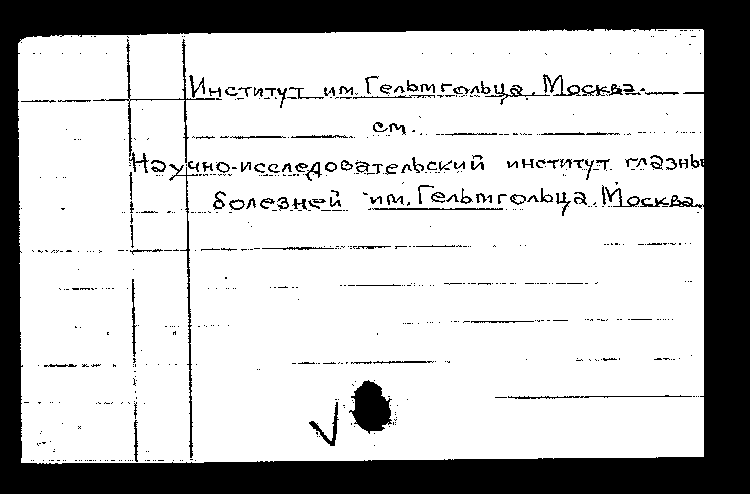 Институт им. Гельмгольца. Москва.
см.
Научно-исследовательский институт глазны
болезней им. Гельмгольца. Москва.